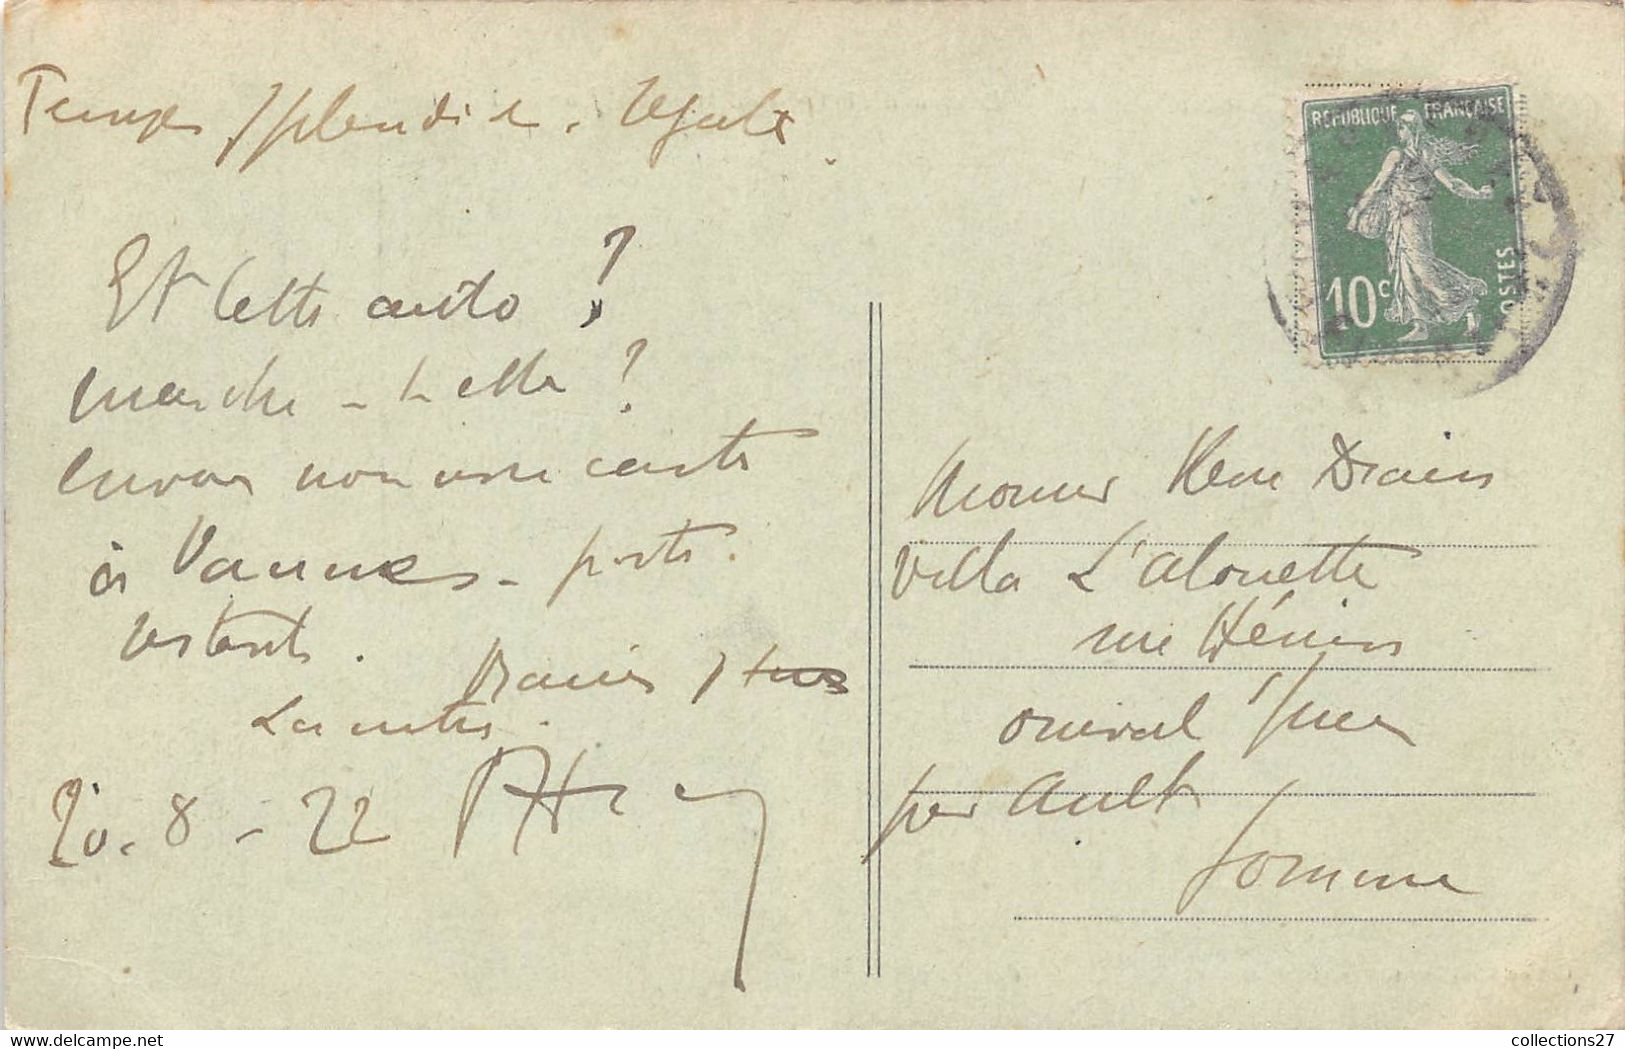 Temps splendide. Régate.
Et cette auto ?
marche-t-elle ?
envoi nous une carte
à Vannes - poste.
restante.
Baisers
20.8-22
REPUBLIQUE FRANÇAISE
10c
POSTES
Monsieur Drains
Villa L'alouette
rue Hénin
onival
par Ault
Somme
collections27